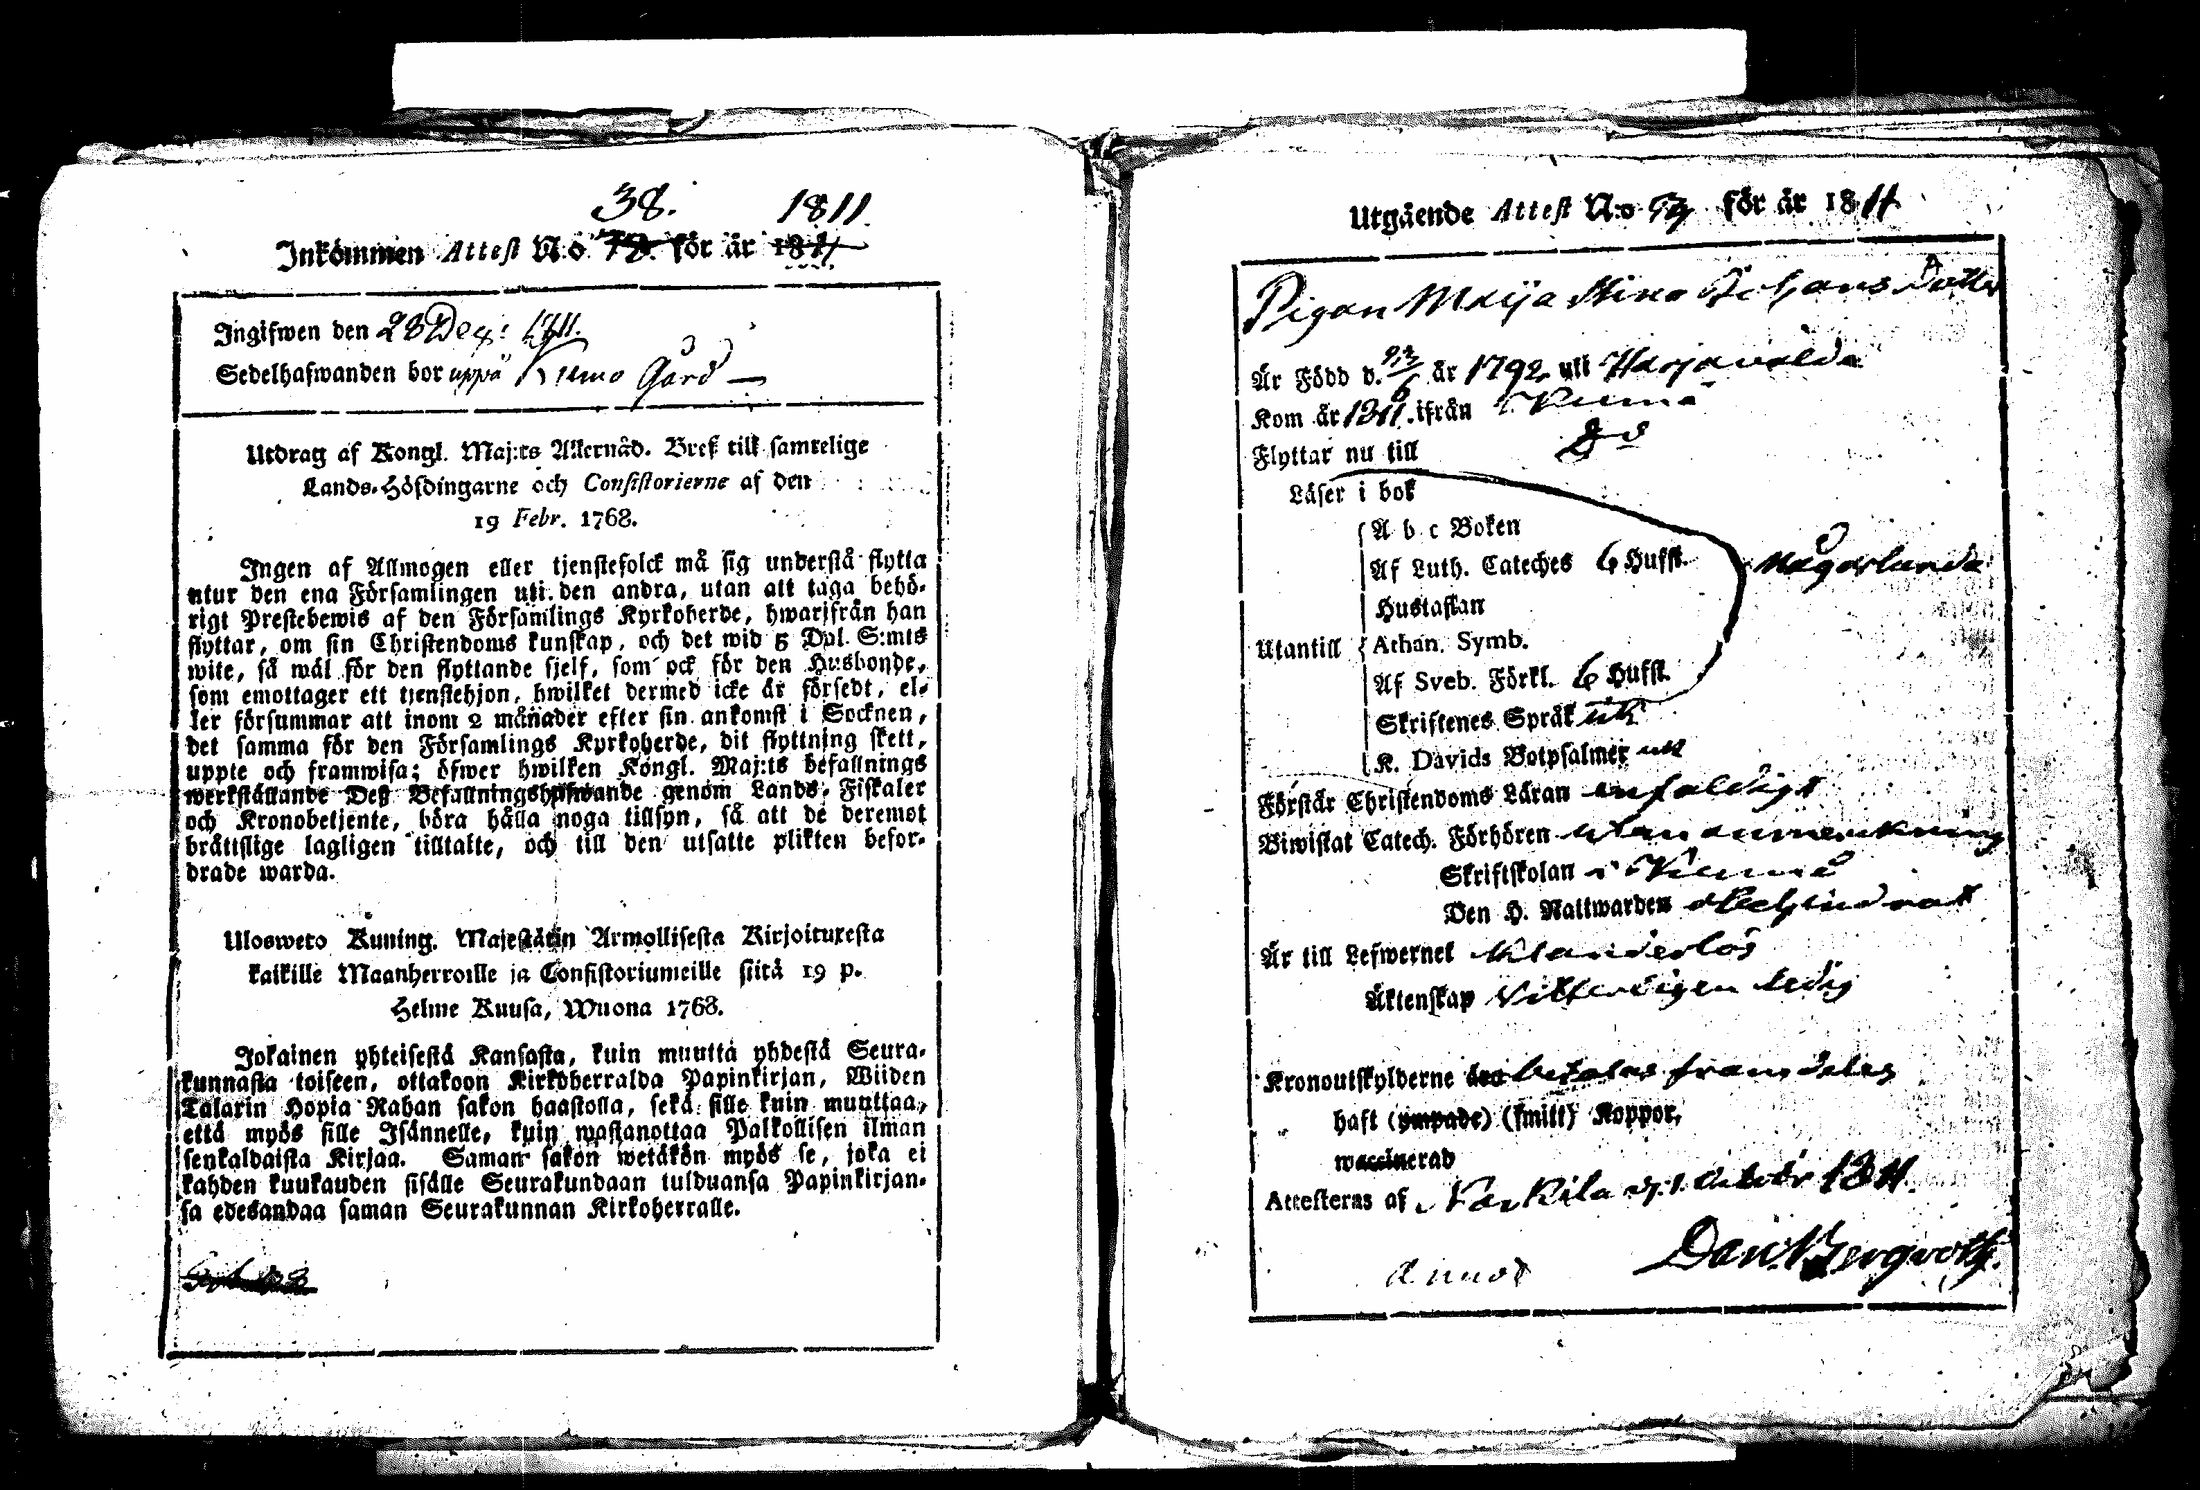 38. 1811.
Inkommen Attest N:o för är
Ingifwen den 28 Dec: 1811.
Sedelhafwanden bor uppå Kiumo Gård —
Utdrag af Kongl. Maj:ts Allernåd. Bref till samtelige
Lands-Höfdingarne och Consistorierne af den
19 Febr. 1768.
Ingen af Allmogen eller tjenstefolck må sig understå flytta
utur den ena Församlingen uti den andra, utan att taga behö-
rigt Prestebewis af den Församlings Kyrkoherde, hwarifrån han
flyttar, om sin Christendoms kunskap, och det wid 5 Dal. S:mts
wite, så wäl för den flyttande sjelf, som ock för den Husbonde,
som emottager ett tjenstehjon, hwilket dermed icke är försedt, el-
ler försummar att inom 2 månader efter sin ankomst i Socknen,
det samma för den Församlings Kyrkoherde, dit flyttning skett,
uppte och framwisa; öfwer hwilken Kongl. Maj:ts befallnings
werkställande Deß Befallningshafwande genom Lands-Fiskaler
och Kronobetjente, böra hålla noga tillsyn, så att de deremot
bråttslige lagligen tilltalte, och till den utsatte plikten befor-
drade warda.
Ulosweto Kuning. Majestätin Armollisesta Kirjoituxesta
kaikille Maanherroille ja Consistoriumeille siitä 19 p.
Helme Kuusa, Wuona 1768.
Jokainen yhteisestä Kansasta, kuin muutta yhdestä Seura-
kunnasta toiseen, ottakoon Kirkoherralda Papinkirjan, Wiiden
Talarin Hopia Rahan sakon haastolla, sekä sille kuin muuttaa,
että myös sille Isännelle, kuin wastanottaa Palkollisen ilman
senkaldaista Kirjaa. Saman sakon wetäkön myös se, joka ei
kahden kuukauden sisälle Seurakundaan tulduansa Papinkirjan-
sa edesandaa saman Seurakunnan Kirkoherralle.
Utgående Attest N:o för är 1811
Pigan Maija Stina Johansdotter
Är Född d. är 1792 uti Harjavalda
Kom är 1811. ifrån Kiumo
Flyttar nu till Do
Läser i bok
A b c Boken
Af Luth. Cateches 6 Hufst.
Hustaflan
någorlunda
Utantill Athan. Symb.
Af Sveb. Förkl. 6 Hufst.
Skriftenes Språk
K. Davids Botpsalmer
Förstår Christendoms Läran enfaldigt
Biwistat Catech. Förhören utan anmerkning
Skriftskolan i Kiumo
Den H. Nattwarden obehindrat
Är till Lefwernet klanderlös
Äktenskap ledig
Kronoutskylderne betalas framdeles
haft (ympade) (smitt) Koppor,
waccinerad
Attesteras af Nackila d. 1. October 1811.
Dan. Bergroth.